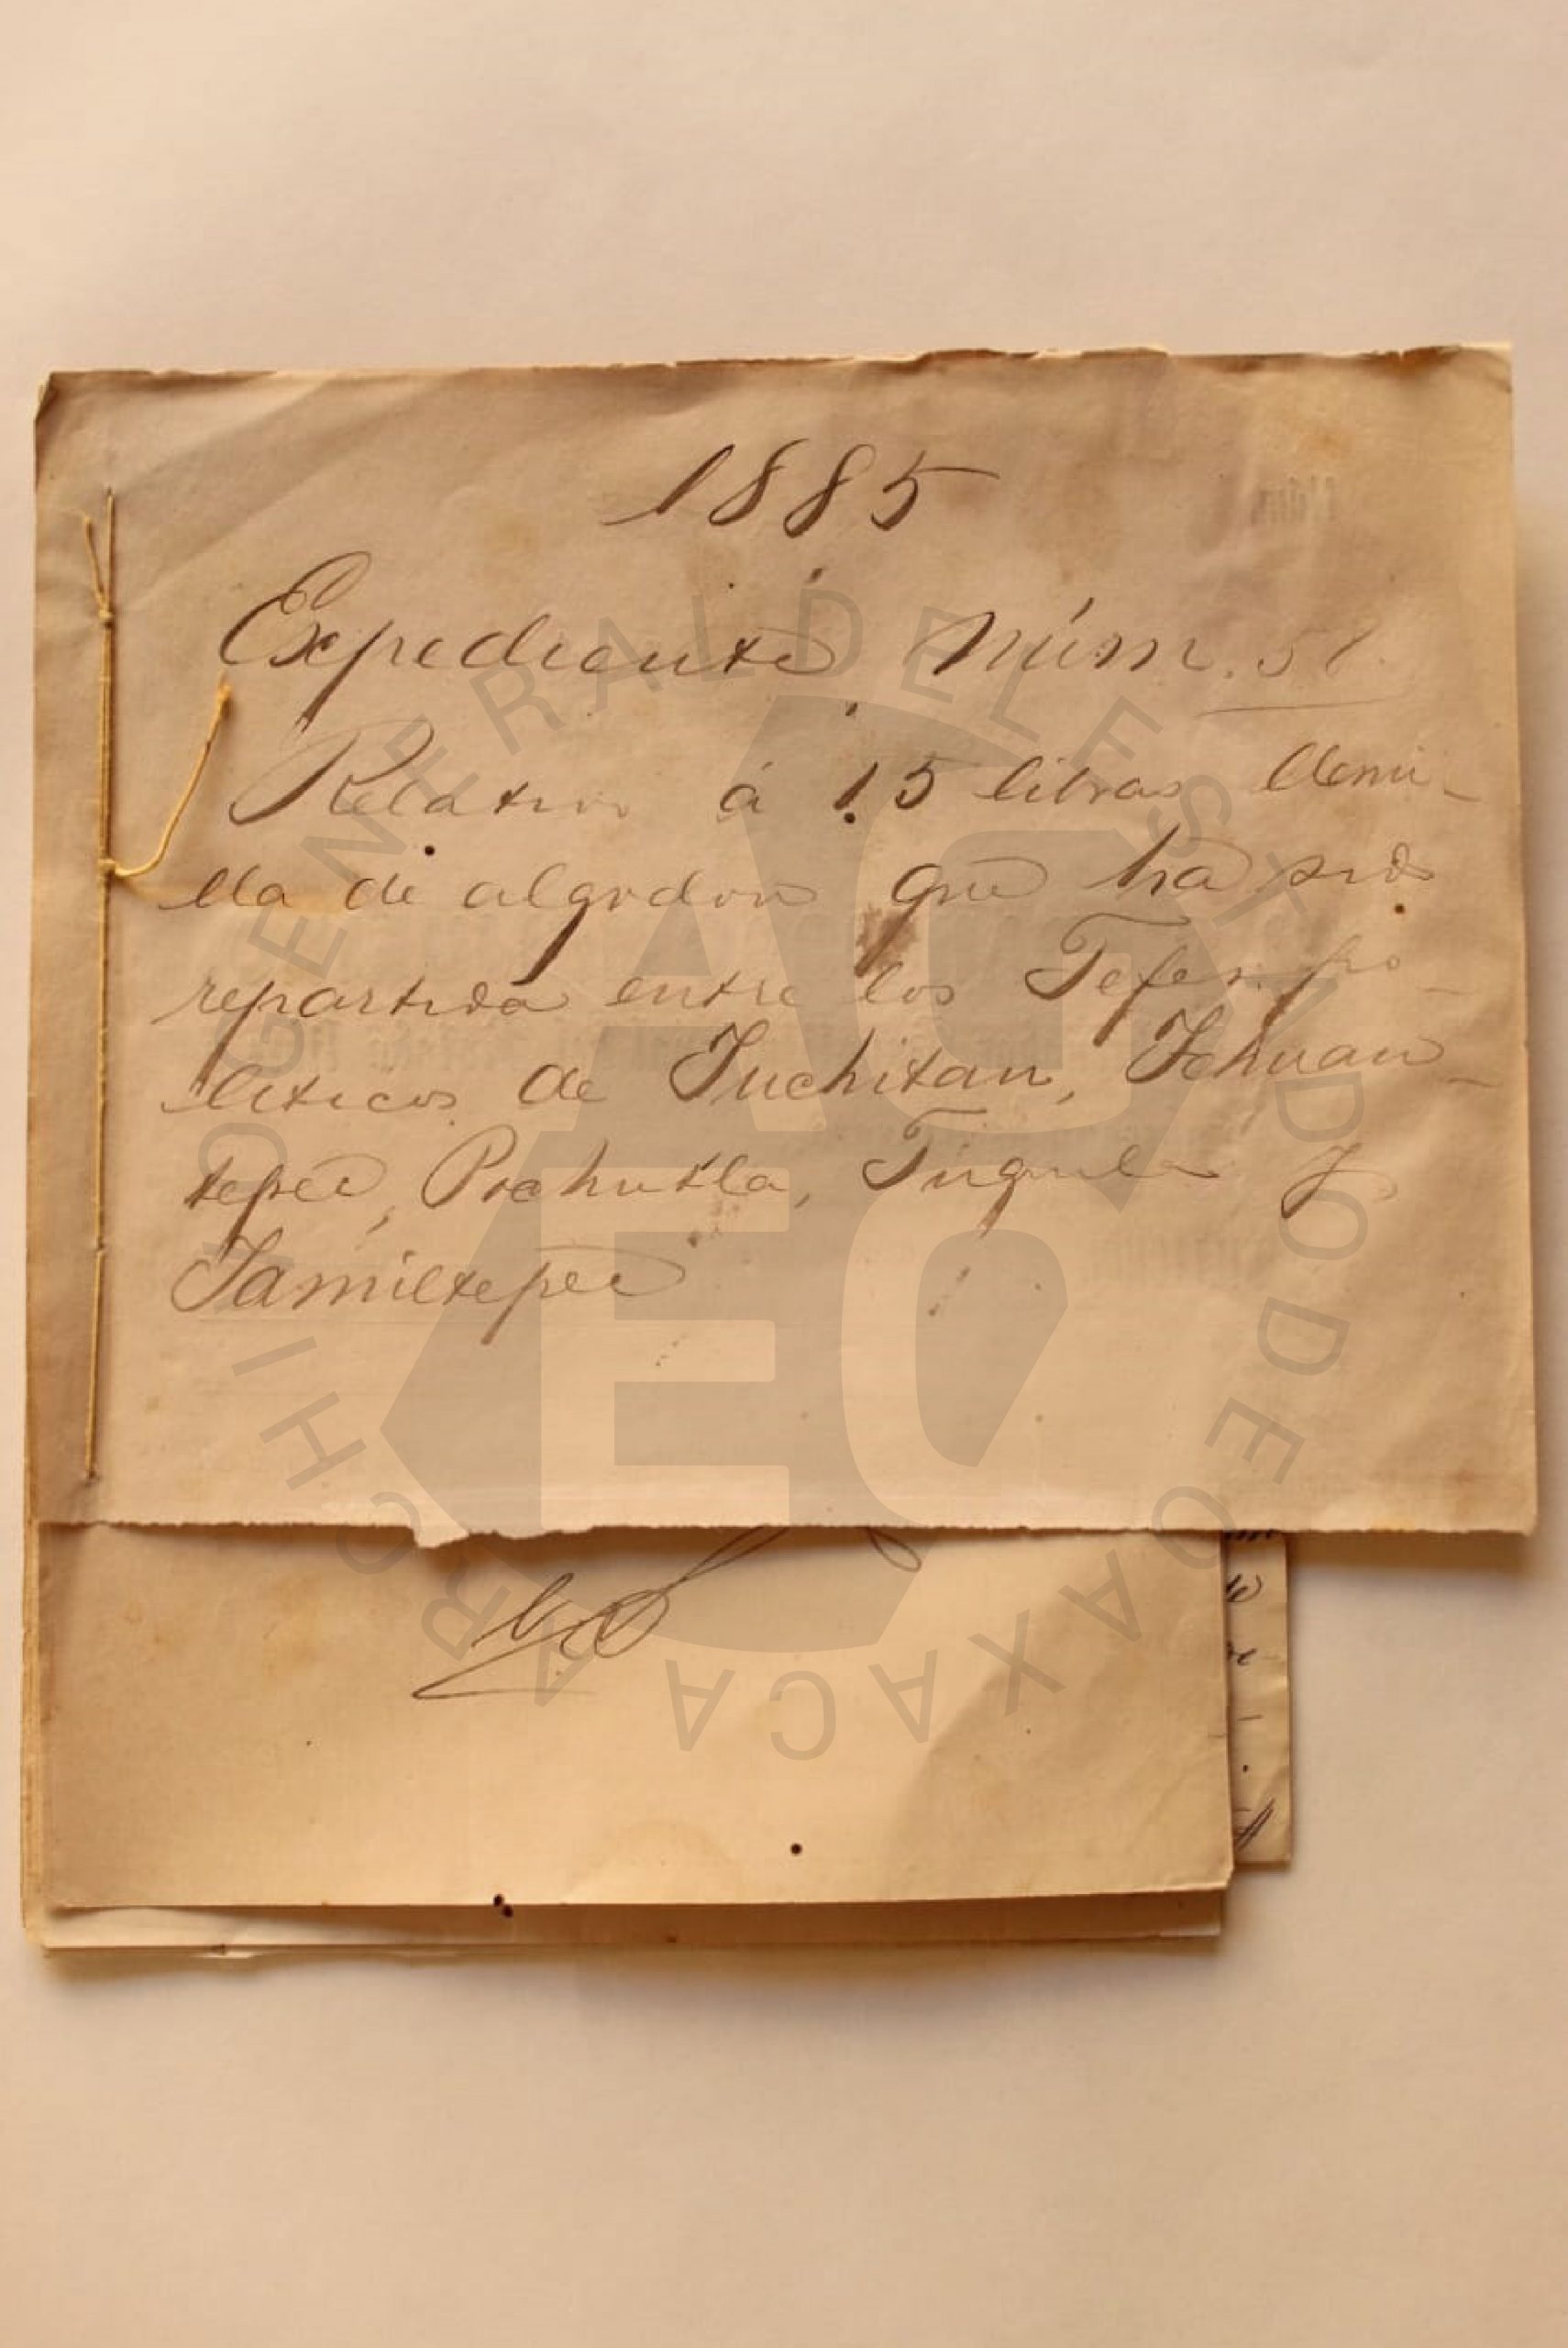 1885
Expediente Núm. 51.
Relativo á 15 libras Semi-
lla de algodon que ha sido
repartida entre los Jefes po-
líticos de Juchitan, Tehuan-
tepec, Pochutla, Tuquila y
Jamiltepec
ARCHIVO GENERAL DEL ESTADO DE OAXACA
AG
EO